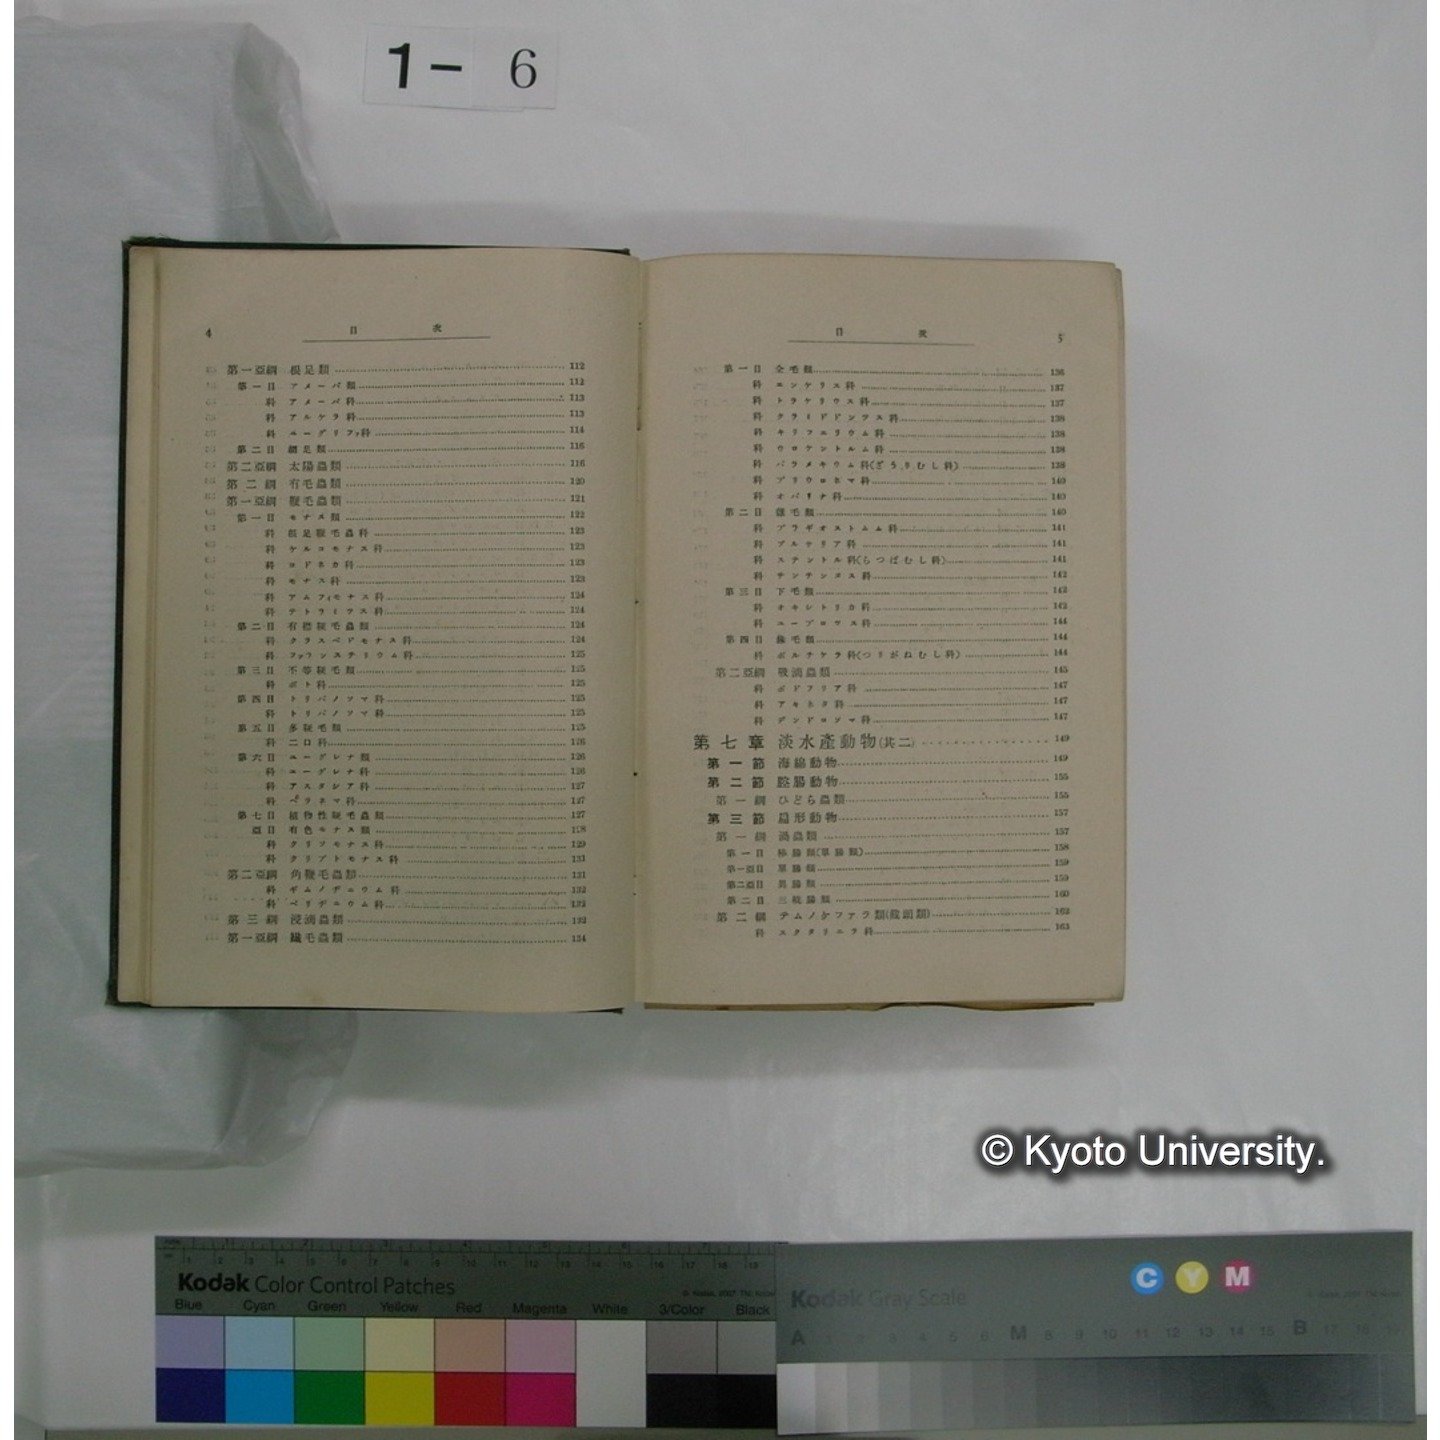 1- 6
4 目 次
第一亞綱 根足類 112
第一目 アメーバ類 112
科 アメーバ科 113
科 アルケラ科 113
科 ユーグリファ科 114
第二目 網足類 116
第二亞綱 太陽蟲類 116
第二綱 有毛蟲類 120
第一亞綱 鞭毛蟲類 121
第一目 モナス類 122
科 根足鞭毛蟲科 123
科 ケルコモナス科 123
科 コドネカ科 123
科 モナス科 123
科 アムフィモナス科 124
科 テトラミツス科 124
第二目 有襟鞭毛蟲類 124
科 クラスペドモナス科 124
科 ファランステリウム科 125
第三目 不等鞭毛類 125
科 ボト科 125
第四目 トリパノソマ類 125
科 トリパノソマ科 125
第五目 多鞭毛類 125
科 二口科 126
第六目 ユーグレナ類 126
科 ユーグレナ科 126
科 アスタシア科 127
科 ペラネマ科 127
第七目 植物性鞭毛蟲類 127
亞目 有色モナス類 128
科 クリソモナス科 129
科 クリプトモナス科 131
第二亞綱 角鞭毛蟲類 131
科 ギムノヂニウム科 132
科 ペリヂニウム科 132
第三綱 浸滴蟲類 132
第一亞綱 纖毛蟲類 134
目 次 5
第一目 全毛類 136
科 エンケリス科 137
科 トラケリウス科 137
科 クラミドドンツス科 138
科 キリフエリウム科 138
科 ウロケントルム科 138
科 パラメキウム科(ざうりむし科) 138
科 プリウロネマ科 140
科 オパリナ科 140
第二目 異毛類 140
科 プラギオストムム科 141
科 ブルサリア科 141
科 ステントル科(らつぱむし科) 141
科 チンチンヌス科 142
第三目 下毛類 142
科 オキシトリカ科 142
科 ユープロウス科 144
第四目 緣毛類 144
科 ボルチケラ科(つりがねむし科) 144
第二亞綱 吸滴蟲類 145
科 ポドフリア科 147
科 アキネタ科 147
科 デンドロソマ科 147
第七章 淡水產動物(其二) 149
第一節 海綿動物 149
第二節 腔腸動物 155
第一綱 ひどら蟲類 155
第三節 扁形動物 157
第一綱 渦蟲類 157
第一目 棒腸類(單腸類) 158
第一亞目 單腸類 159
第二亞目 異腸類 159
第二目 三岐腸類 160
第二綱 テムノケファラ類(截頭類) 162
科 スクタリエラ科 163
© Kyoto University.
Kodak Color Control Patches
Blue Cyan Green Yellow Red Magenta White 3/Color Black
Kodak Gray Scale
C Y M
A 1 2 3 4 5 6 M 8 9 10 11 12 13 14 15 B 17 18